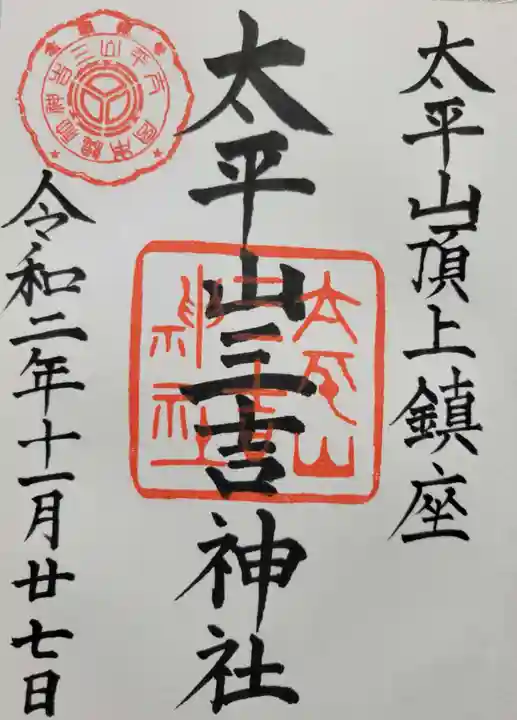 太平山頂上鎮座
太平山三吉神社
令和二年十一月廿七日
太平山
三吉
神社